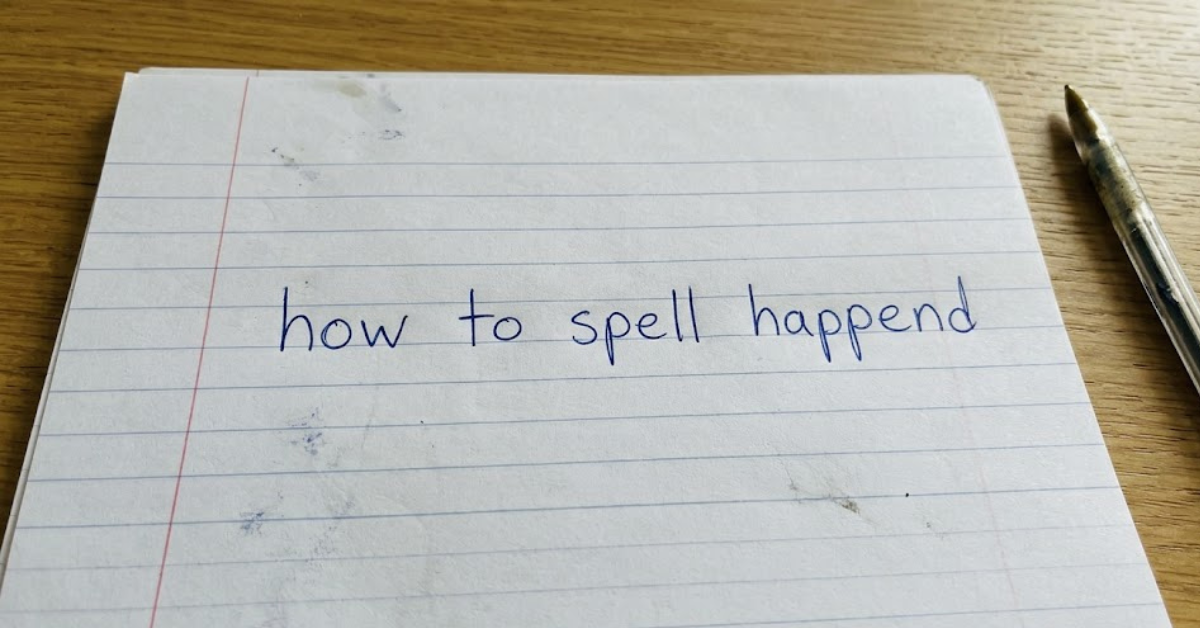 how to spell happend